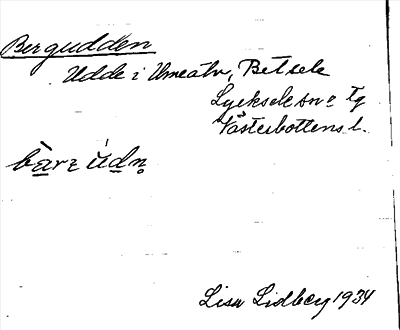 Bergudden
Udde i Umeälv, Betsele
Lycksele sn o Tg
Västerbottens l.
Lisa Lidberg 1934